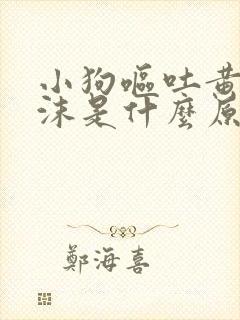 小狗嘔吐黃
沫是什麼原
鄭海喜